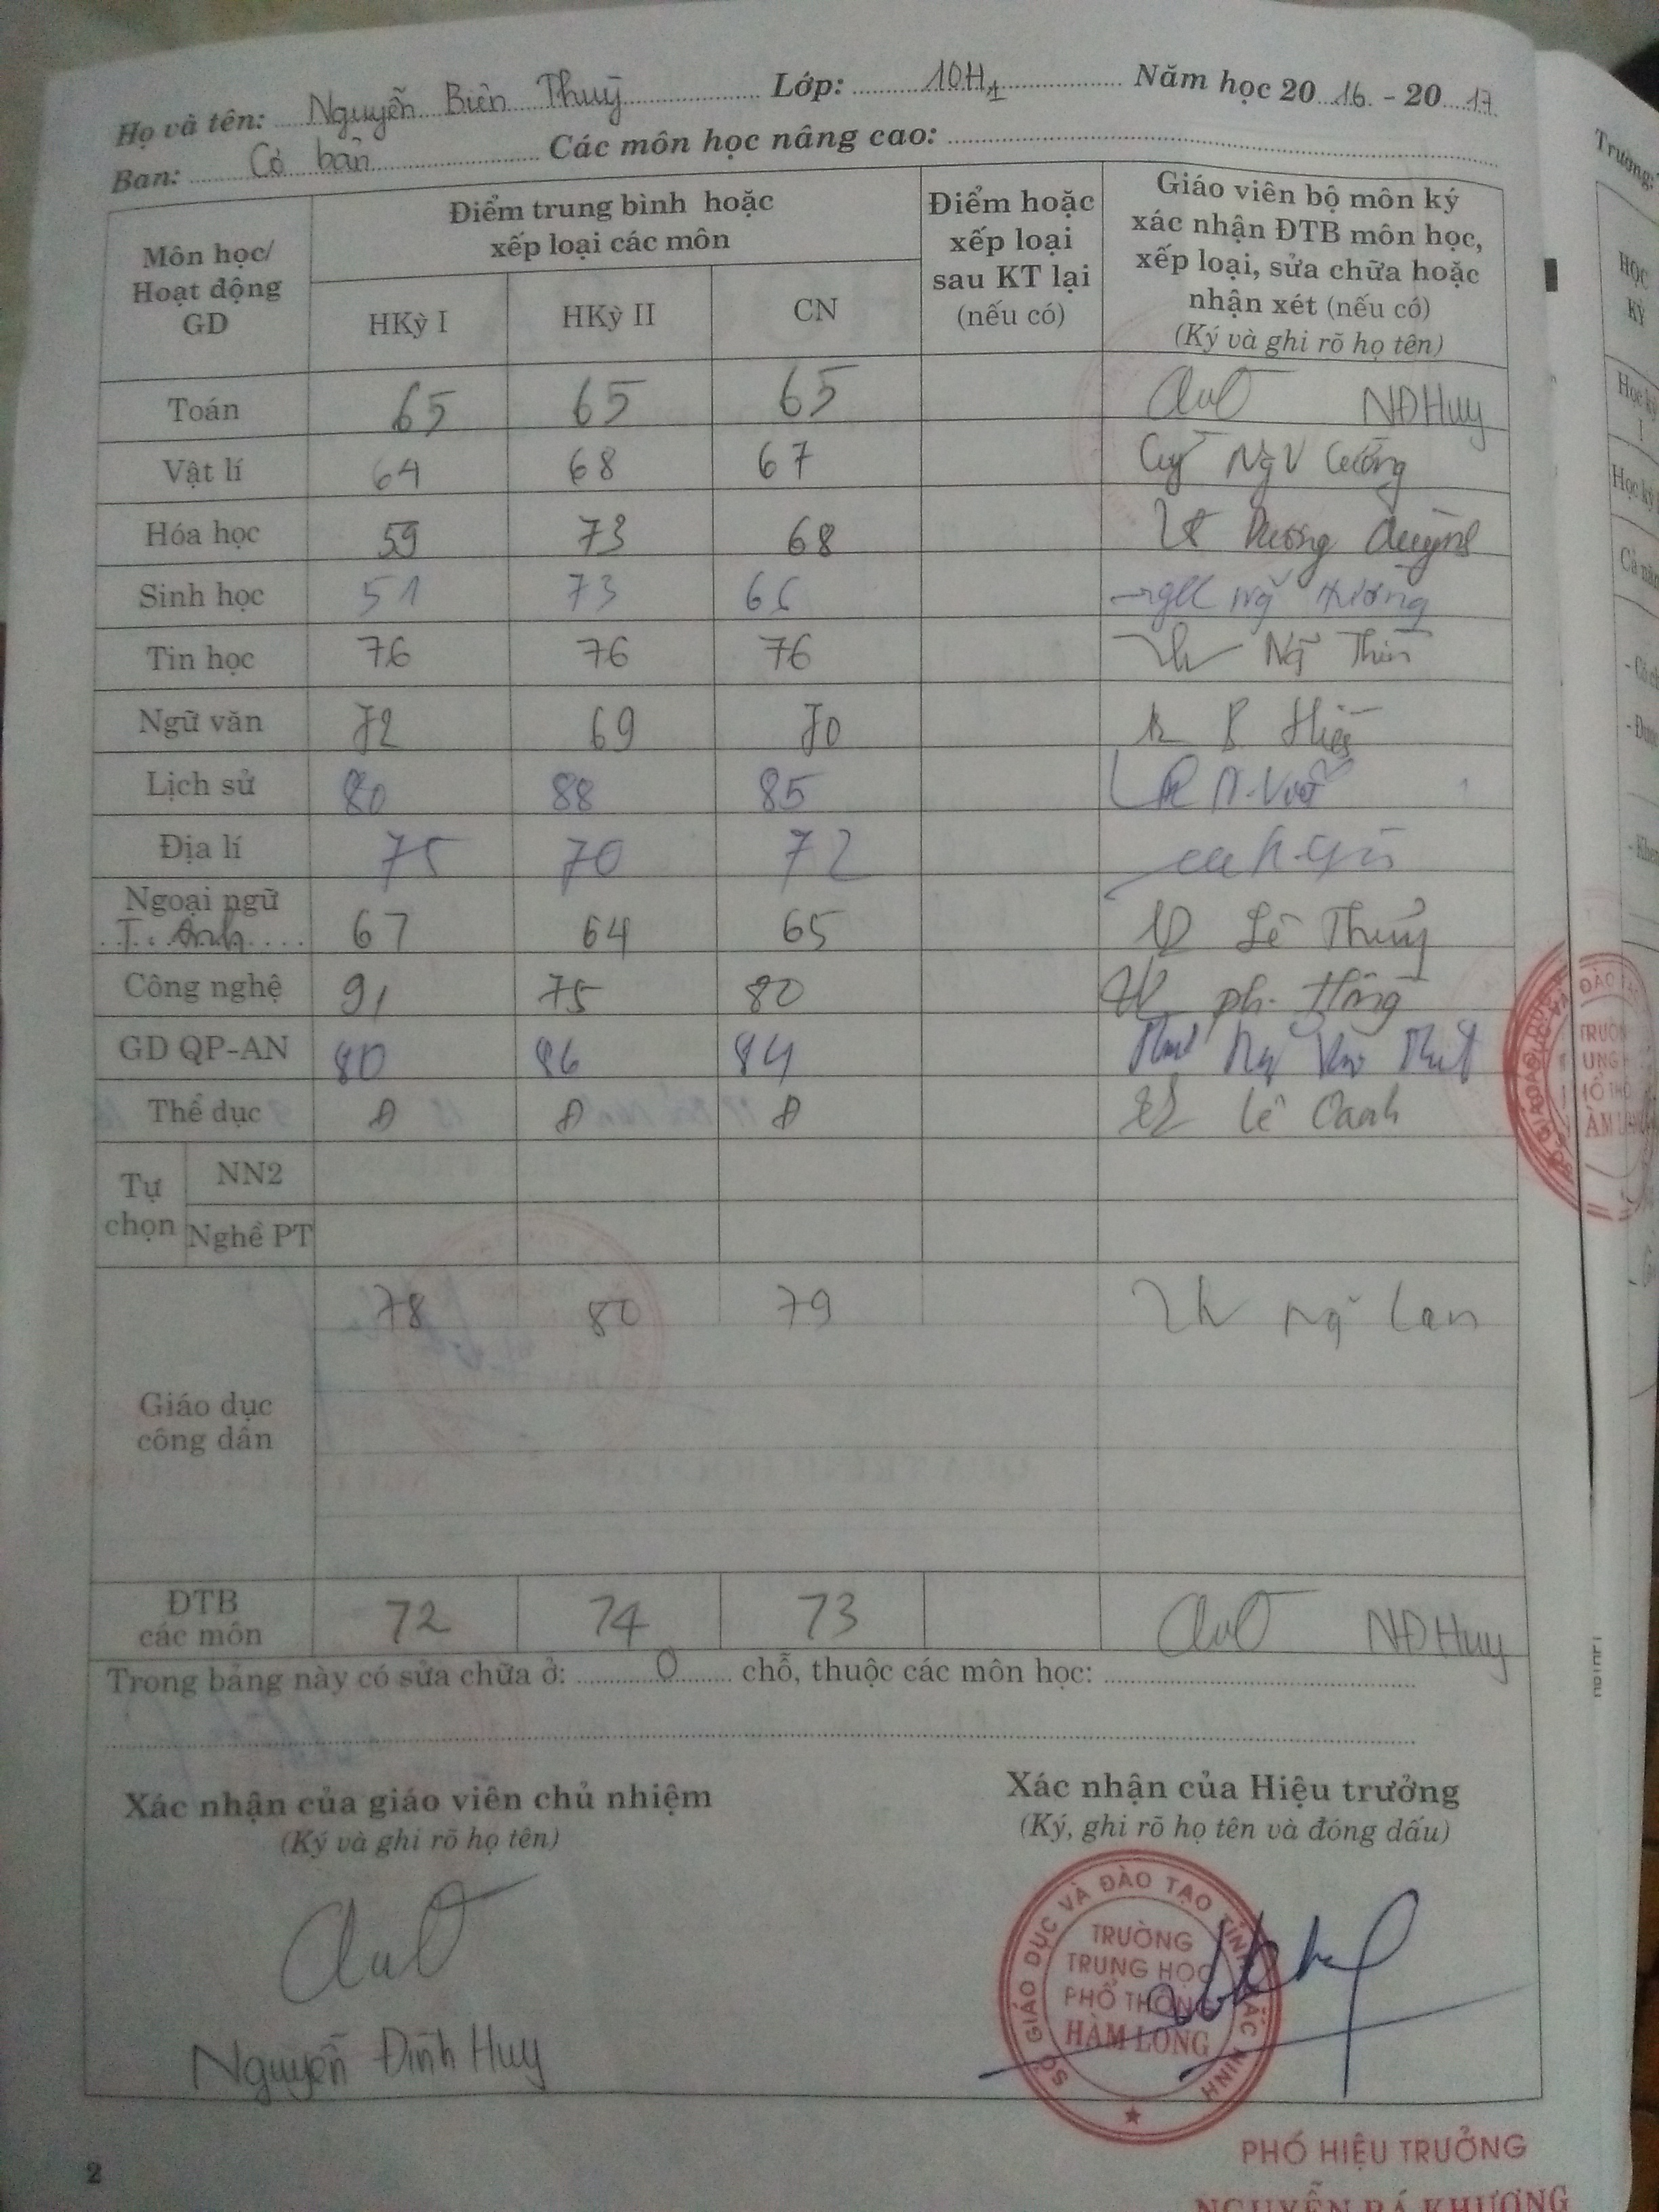 Họ và tên: Nguyễn Biên Thuỳ Lớp: 10H1 Năm học 20 16 - 20 17
Ban: Cơ bản Các môn học nâng cao:
Môn học/ Hoạt động GD
Điểm trung bình hoặc xếp loại các môn
Điểm hoặc xếp loại sau KT lại (nếu có)
Giáo viên bộ môn ký xác nhận ĐTB môn học, xếp loại, sửa chữa hoặc nhận xét (nếu có) (Ký và ghi rõ họ tên)
HKỳ I HKỳ II CN
Toán 65 65 65 NĐHuy
Vật lí 64 68 67 Ng V Cường
Hóa học 59 73 68 Dương Quỳnh
Sinh học 51 73 66 Ng Hường
Tin học 76 76 76
Ngữ văn 72 69 70
Lịch sử 80 88 85
Địa lí 75 70 72
Ngoại ngữ
T. Anh 67 64 65 Lê Thuỷ
Công nghệ 91 75 80 ph. Hồng
GD QP-AN 80 86 84
Thể dục Đ Đ Đ Lê Oanh
Tự chọn
NN2
Nghề PT
Giáo dục công dân 78 80 79 Ng Lan
ĐTB các môn 72 74 73 NĐHuy
Trong bảng này có sửa chữa ở: 0 chỗ, thuộc các môn học:
Xác nhận của giáo viên chủ nhiệm Xác nhận của Hiệu trưởng
(Ký và ghi rõ họ tên) (Ký, ghi rõ họ tên và đóng dấu)
SỞ GIÁO DỤC VÀ ĐÀO TẠO TỈNH BẮC NINH
TRƯỜNG
TRUNG HỌC
PHỔ THÔNG
HÀM LONG
Nguyễn Đình Huy
PHÓ HIỆU TRƯỞNG
NGUYỄN BÁ KHƯƠNG
2
Trường:
HỌC KỲ
Học kỳ I
Học kỳ
Cả năm